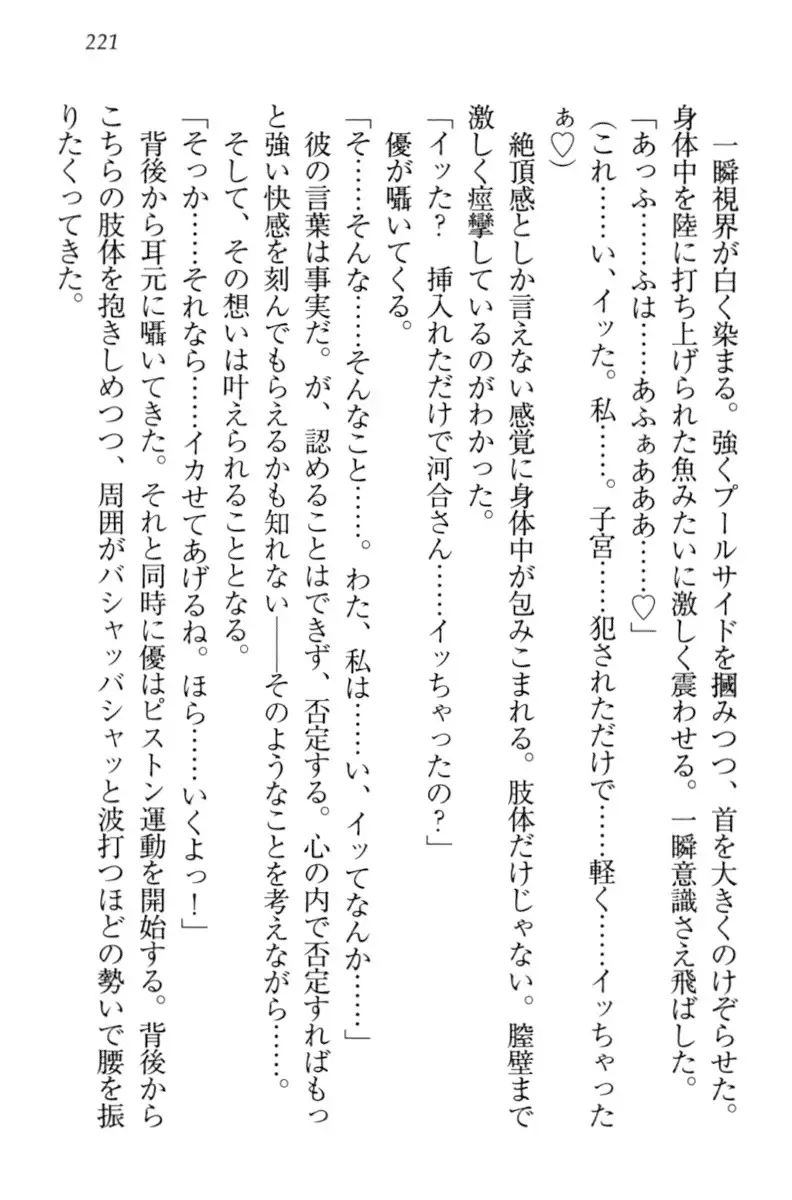 221
一瞬視界が白く染まる。強くプールサイドを摑みつつ、首を大きくのけぞらせた。
身体中を陸に打ち上げられた魚みたいに激しく震わせる。一瞬意識さえ飛ばした。
「あっふ……ふは……あふぁあああ……♡」
（これ……い、イッた。私……。子宮……犯されただけで……軽く……イッちゃった
ぁ♡）
絶頂感としか言えない感覚に身体中が包みこまれる。肢体だけじゃない。膣壁まで
激しく痙攣しているのがわかった。
「イッた？　挿入れただけで河合さん……イッちゃったの？」
優が囁いてくる。
「そ……そんな……そんなこと……。わた、私は……い、イッてなんか……」
彼の言葉は事実だ。が、認めることはできず、否定する。心の内で否定すればもっ
と強い快感を刻んでもらえるかも知れない――そのようなことを考えながら……。
そして、その想いは叶えられることとなる。
「そっか……それなら……イカせてあげるね。ほら……いくよっ！」
背後から耳元に囁いてきた。それと同時に優はピストン運動を開始する。背後から
こちらの肢体を抱きしめつつ、周囲がバシャッバシャッと波打つほどの勢いで腰を振
りたくってきた。